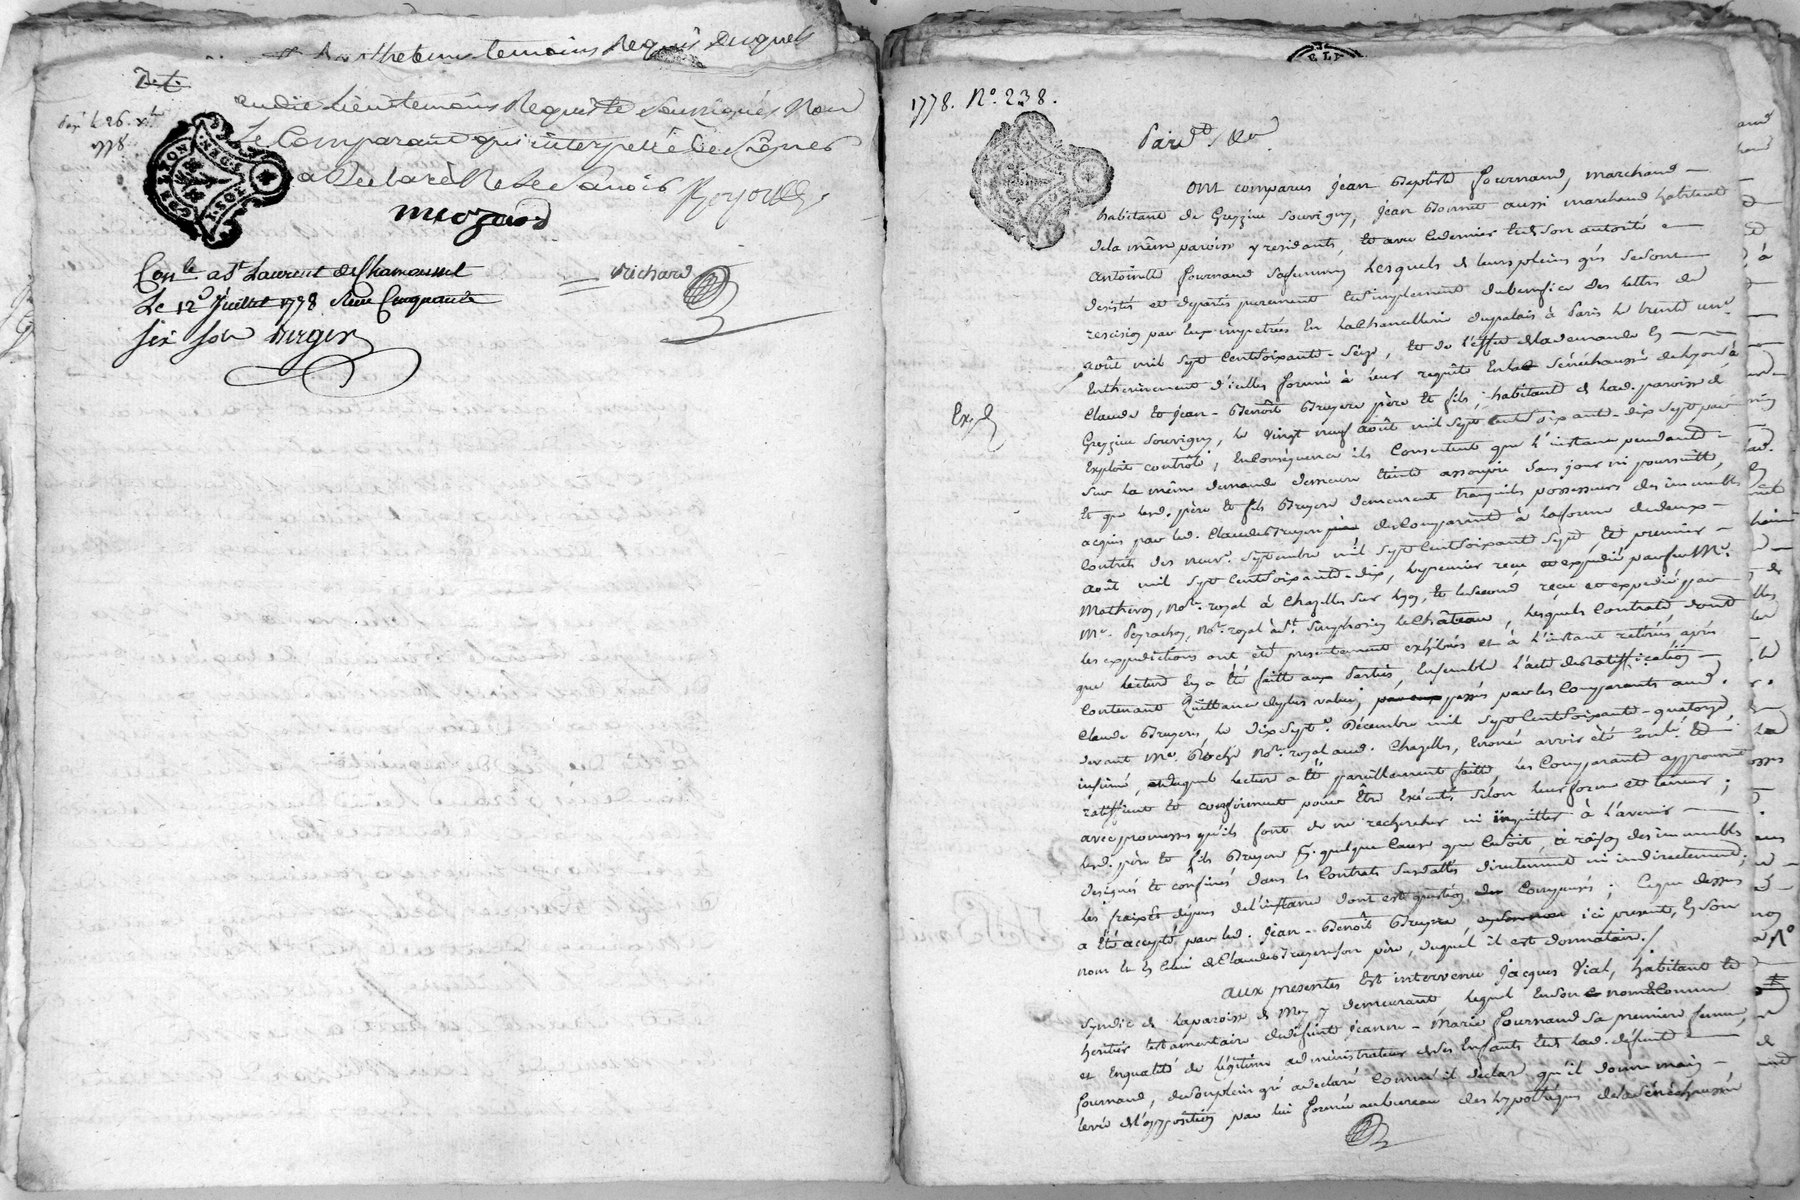 témoins Requis Lesquels
payé le 26. xbre
1778
audit Lieu temoins Requis Soussignés Non
Le Comparant qui interpellé de signer
a Declaré Ne Le Savoir
GEN. DE LYON
Richard
Conlé a St Laurent de Chamousset
Le 12e Juillet 1778 Reçu Cinquante
six sols
1778. No. 238.
Pard.
Ont comparus Jean Baptiste Fournand, marchand
habitant de Grezieu Souvigny, Jean Bonnet aussi marchand habitant
de la même paroisse y residants, et avec ce dernier et de son autorité
Antoinette Fournand sa femme, Lesquels de leurs pleins grés se sont
desistés et departis purement et simplement du benefice des lettres de
rescision par eux impetrées En la Chancellerie du palais à Paris le trente un
août mil sept cent soixante-seize, et de l'effet de la demande En
Entherinement d'icelles formée à leur requête En la Sénéchaussée de Lyon à
Claude et Jean-Benoît Bruyere père et fils, habitant de lad. paroisse de
Grezieu Souvigny, le vingt neuf août mil sept cent soixante-dix sept par
Exploit controlé, En conséquence ils consentent que l'instance pendante
sur la même demande demeure éteinte assoupie sans jour ni poursuitte,
et que lesd. père et fils Bruyere demeurent tranquils possesseurs des immeubles
acquis par led. Claude Bruyere des Comparants à la forme de deux
Contrats des neuf septembre mil sept cent soixante sept, et premier
août mil sept cent soixante-dix, le premier reçu et expédié par feu Me.
Matheron, Nore. royal à Chazelles sur Lyon, et le second reçu et expedié par
Me. Peyrachon, Nore. royal à St. Simphorien le Château, lesquels Contrats dont
les expeditions ont été presentement exhibées et à l'instant retirées après
que lecture En a été faitte aux Parties, Ensemble l'acte de Ratiffication
contenant Quittance passés par les Comparants aud.
Claude Bruyere, le dix sept Décembre mil sept cent soixante-quatorze
devant Me. Nore. royal aud. Chazelles, Enoncé avoir été Conlé. et
insinué, duquel lecture a été pareillement faitte, les Comparants approuvent
ratiffient et confirment pour Être Executés selon leur forme et teneur;
avec promesses qu'ils font de ne rechercher ni inquitter à l'avenir
lesd. père et fils Bruyere pr. quelque Cause que ce soit, à raison des immeubles
designés et confinés dans les Contrats susdattés directement ni indirectement,
les fraix et dépens de l'instance dont est question compensés; Ce que dessus
a été accepté par led. Jean-Benoît Bruyere ici present, En son
nom et En celui de Claude Bruyere son père, duquel il est donnataire./
Aux presentes Est intervenu Jacques Vial, habitant et
syndic de la paroisse de Mey y demeurant lequel En son nom Comme
heritier testamentaire de defunte Jeanne-Marie Fournand sa premiere femme,
et En qualité de légitime administrateur de ses Enfants et de lad. defunte
Fournand, de son plein gré a declaré comme il declare qu'il donne main
levée de l'opposition par lui formée au bureau des hypotéques de la Sénéchaussée